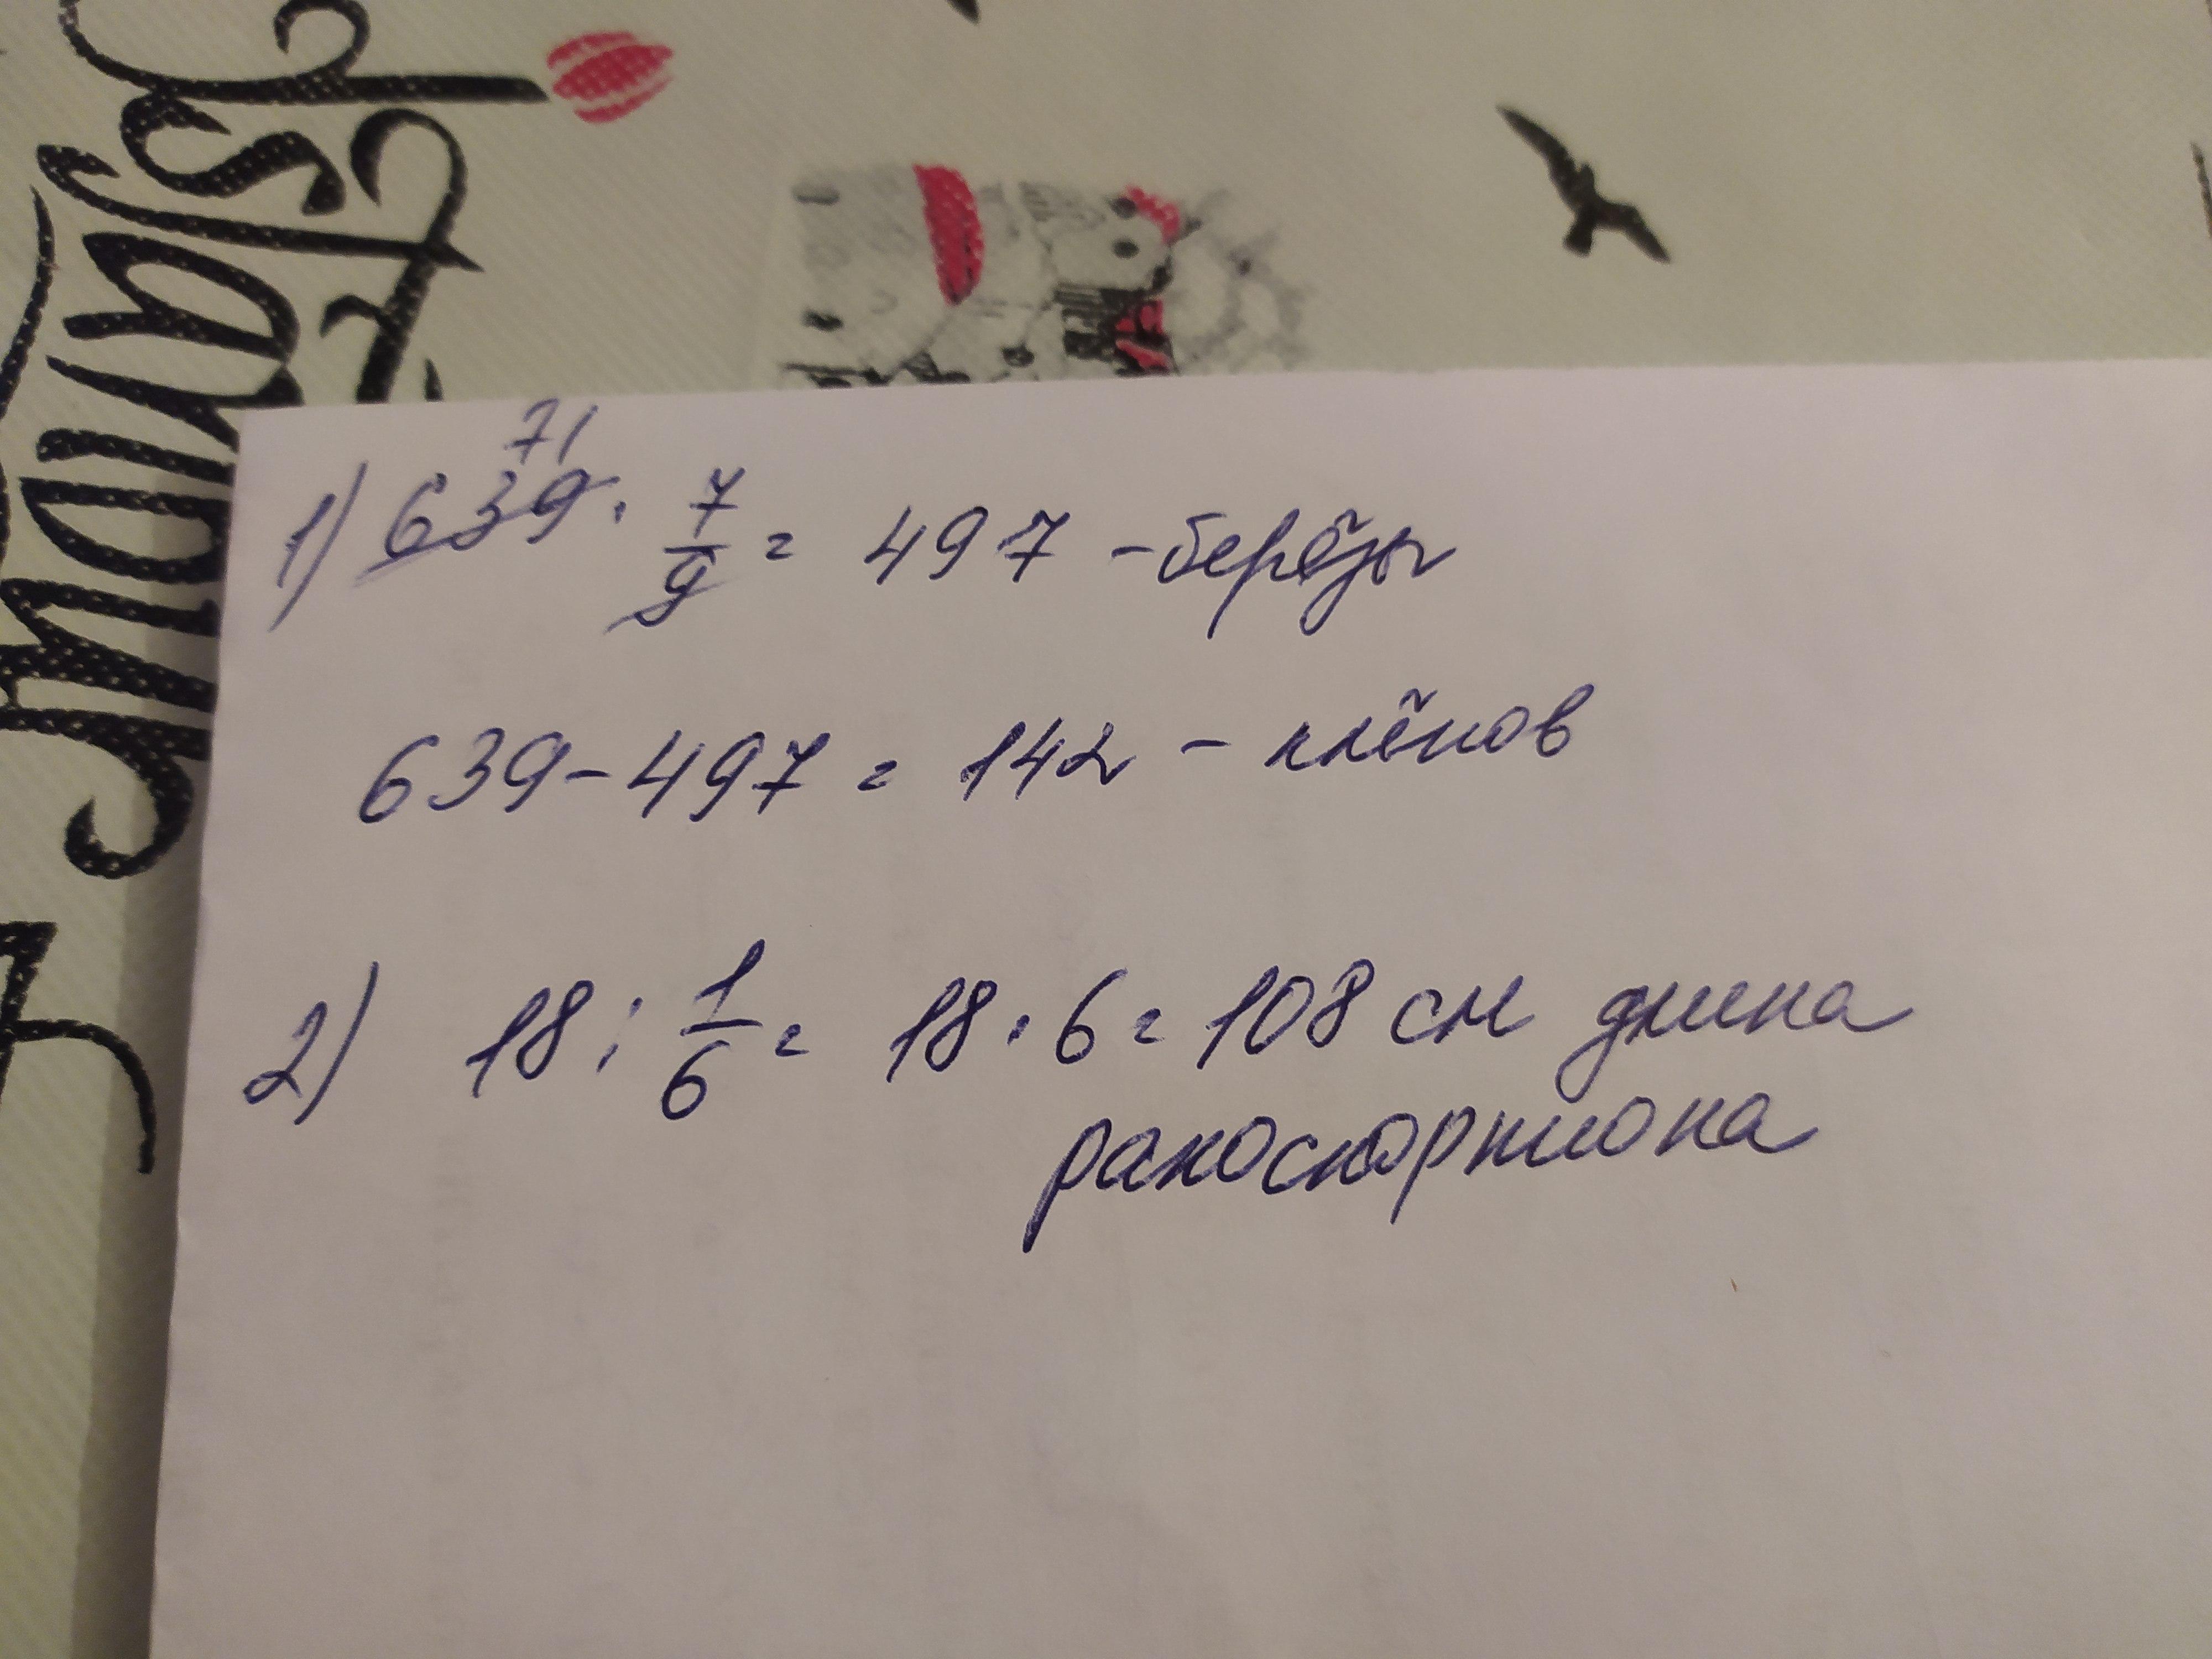 71
1) 639 · 7/9 = 497 - берёзы
639 - 497 = 142 - клёнов
2) 18 : 1/6 = 18 · 6 = 108 см длина
ракоскорпиона